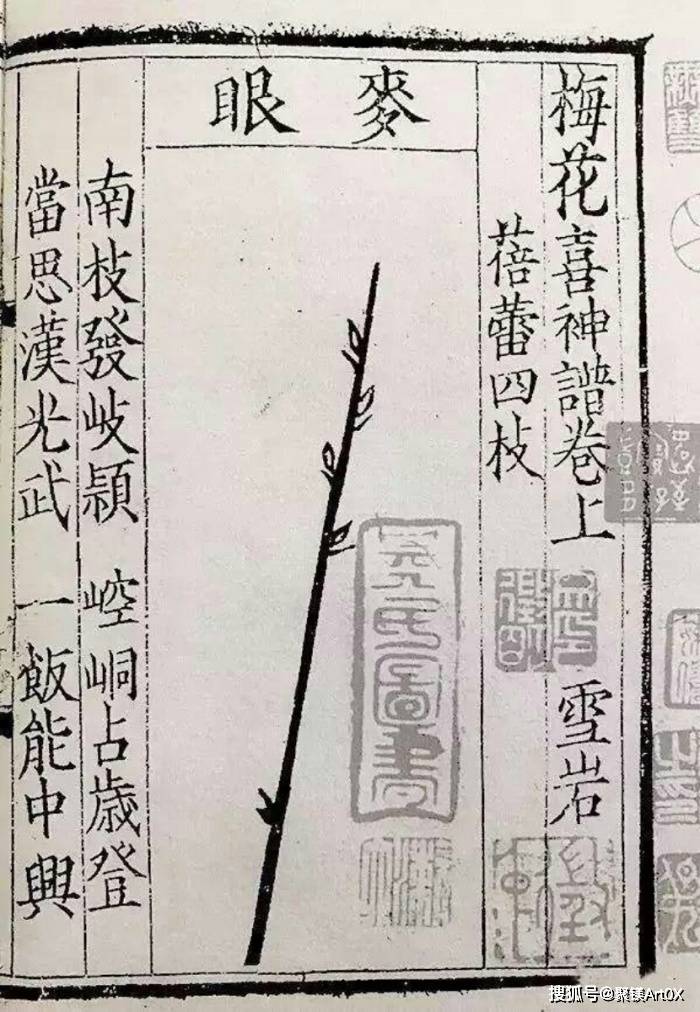 梅花喜神譜卷上 雪岩
蓓蕾四枝
麥眼
南枝發岐穎 崆峒占歳登
當思漢光武 一飯能中興
搜狐号@聚镁ArtOX